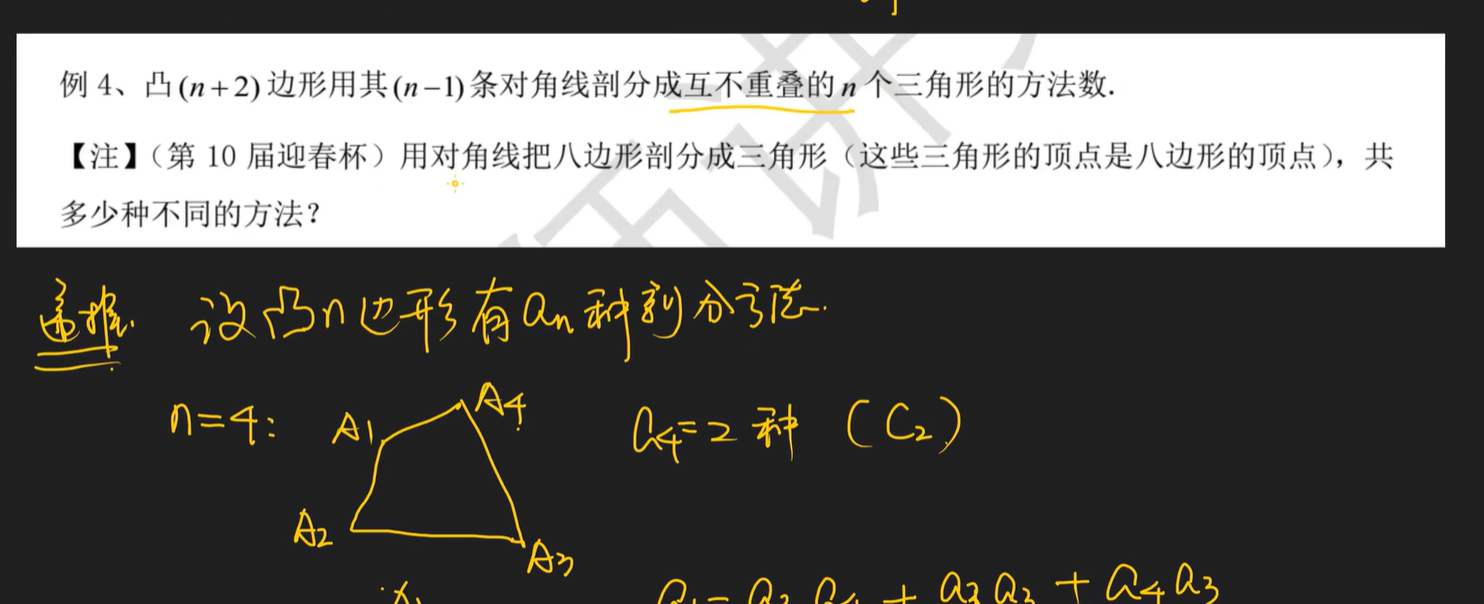 例 4、凸(n+2)边形用其(n−1)条对角线剖分成互不重叠的 n 个三角形的方法数.
【注】(第 10 届迎春杯) 用对角线把八边形剖分成三角形 (这些三角形的顶点是八边形的顶点), 共
多少种不同的方法?
递推. 设凸n边形有an种剖分方法.
n=4: A1 A4 a4=2 种 (C2)
A2 A3
a3 a3 + a4 a3